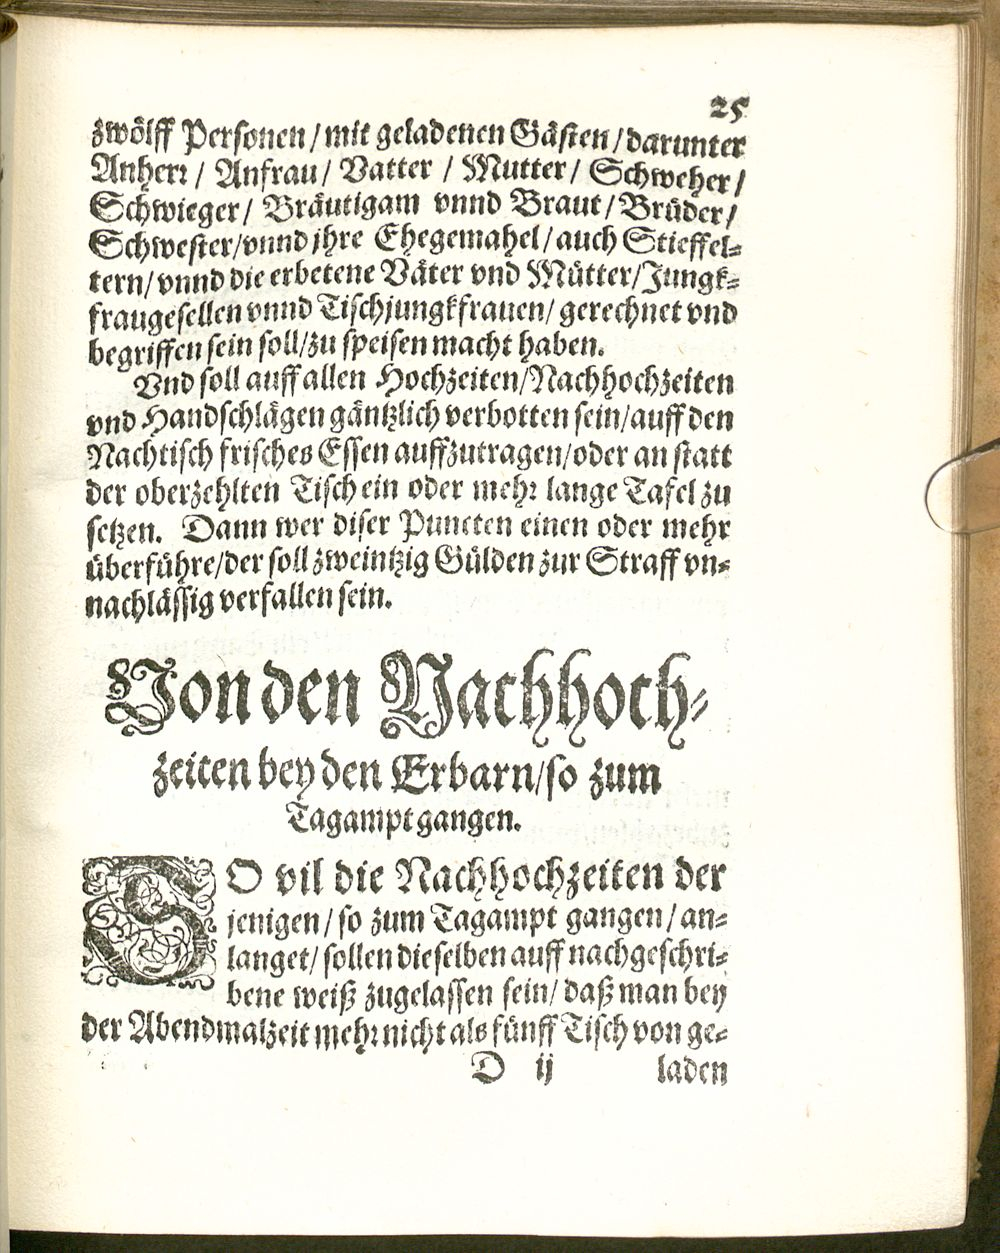 25
zwölff Personen / mit geladenen Gästen / darunter
Anherr / Anfrau / Vatter / Mutter / Schweher /
Schwieger / Bräutigam vnnd Braut / Brüder /
Schwester / vnnd jhre Ehegemahel / auch Stieffel⸗
tern / vnnd die erbetene Väter vnd Mütter / Jungk⸗
fraugesellen vnnd Tischjungkfrauen / gerechnet vnd
begriffen sein soll / zu speisen macht haben.
Vnd soll auff allen Hochzeiten / Nachhochzeiten
vnd Handschlägen gäntzlich verbotten sein / auff den
Nachtisch frisches Essen auffzutragen / oder an statt
der oberzehlten Tisch ein oder mehr lange Tafel zu
setzen. Dann wer diser Puncten einen oder mehr
überführe / der soll zweintzig Gülden zur Straff vn⸗
nachlässig verfallen sein.
Von den Nachhoch⸗
zeiten bey den Erbarn / so zum
Tagampt gangen.
SO vil die Nachhochzeiten der
jenigen / so zum Tagampt gangen / an⸗
langet / sollen dieselben auff nachgeschri⸗
bene weiß zugelassen sein / daß man bey
der Abendmalzeit mehr nicht als fünff Tisch von ge⸗
D ij laden